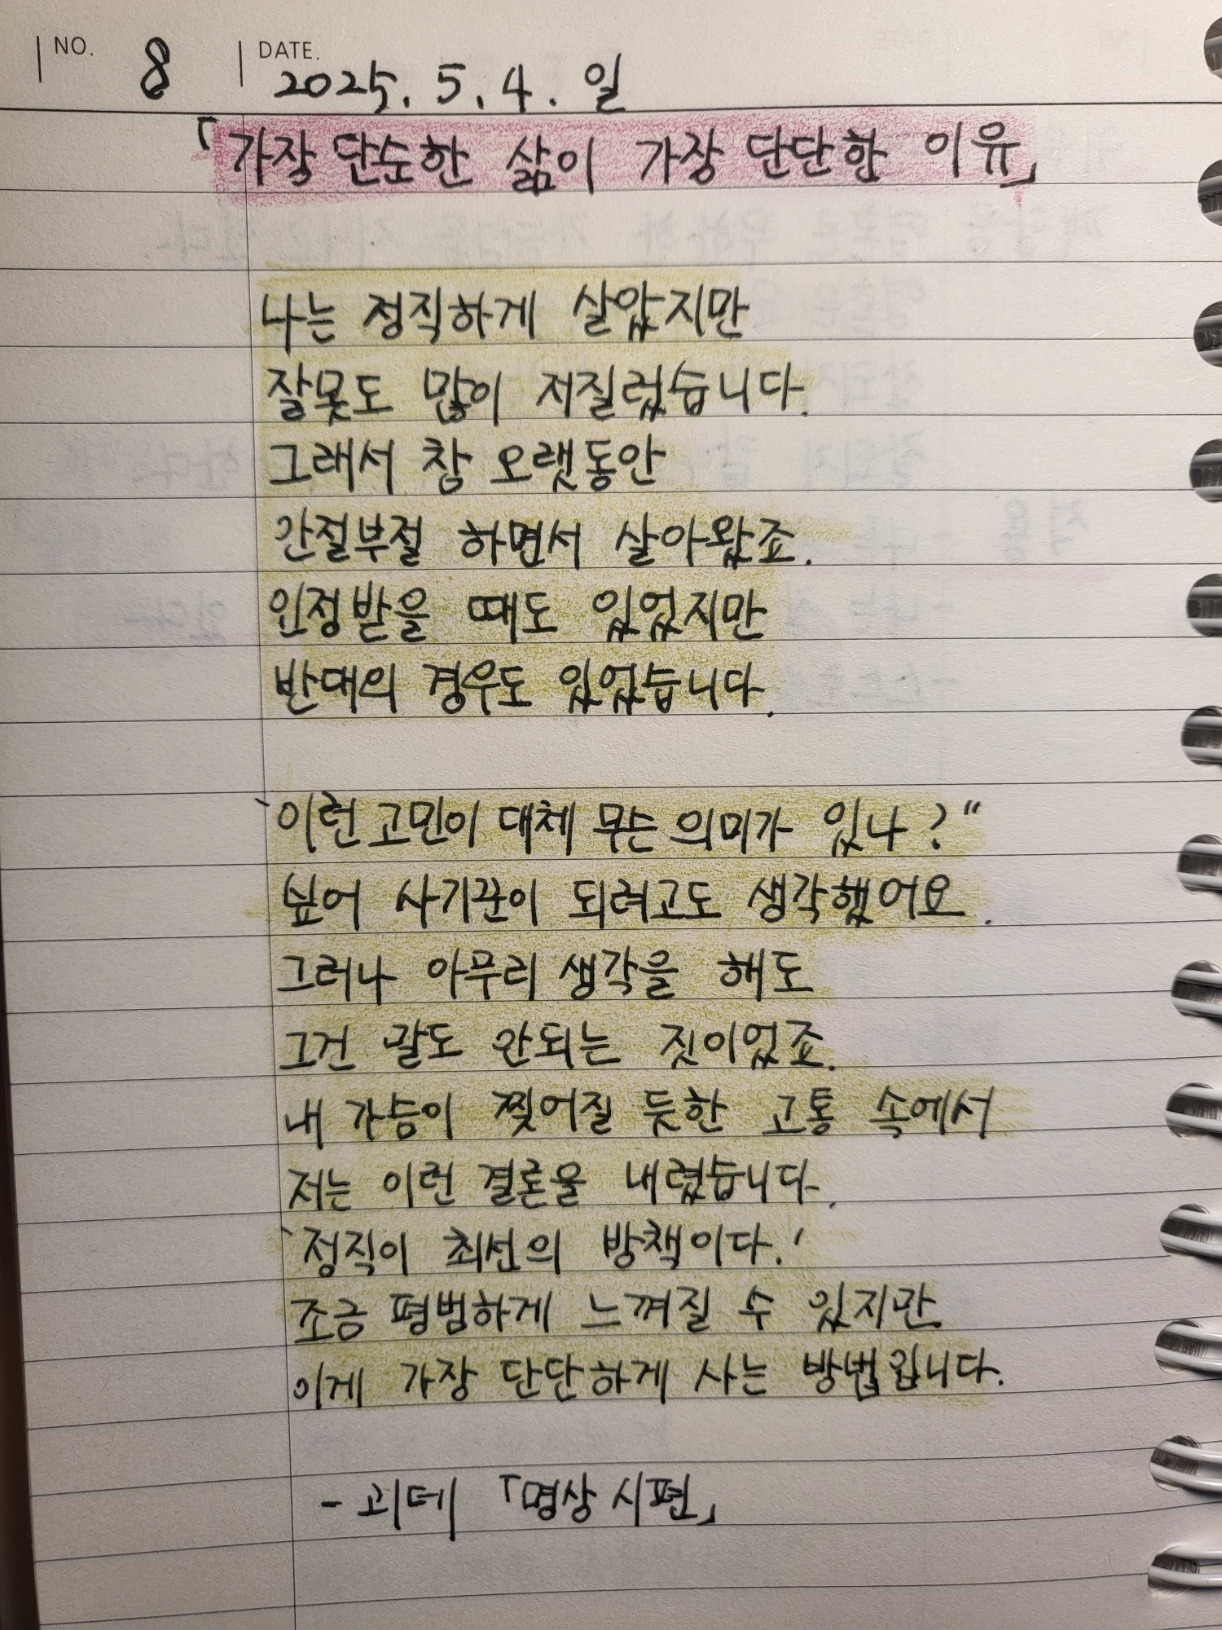 NO. 8 DATE. 2025. 5. 4. 일
「가장 단순한 삶이 가장 단단한 이유」
나는 정직하게 살았지만
잘못도 많이 저질렀습니다.
그래서 참 오랫동안
안절부절 하면서 살아왔죠.
인정받을 때도 있었지만
반대의 경우도 있었습니다.
`이런 고민이 대체 무슨 의미가 있나?"
싶어 사기꾼이 되려고도 생각했어요.
그러나 아무리 생각을 해도
그건 말도 안되는 짓이었죠.
내 가슴이 찢어질 듯한 고통 속에서
저는 이런 결론을 내렸습니다.
`정직이 최선의 방책이다.'
조금 평범하게 느껴질 수 있지만.
이게 가장 단단하게 사는 방법입니다.
- 괴테 「명상 시편」